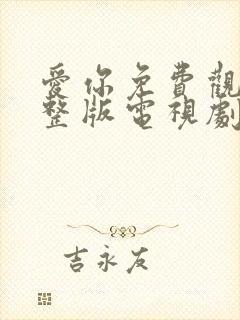 愛你免費觀
整版電視劇
吉永友